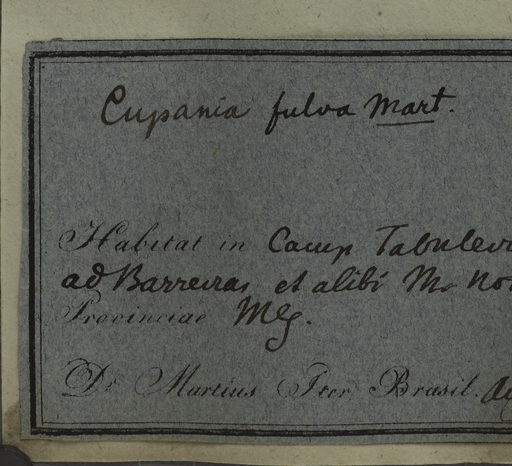 Cupania fulva Mart.
Habitat in Camp Tabuleir
ad Barreiras, et alibi
Provinciae MG.
Dr. Martius Iter Brasil.